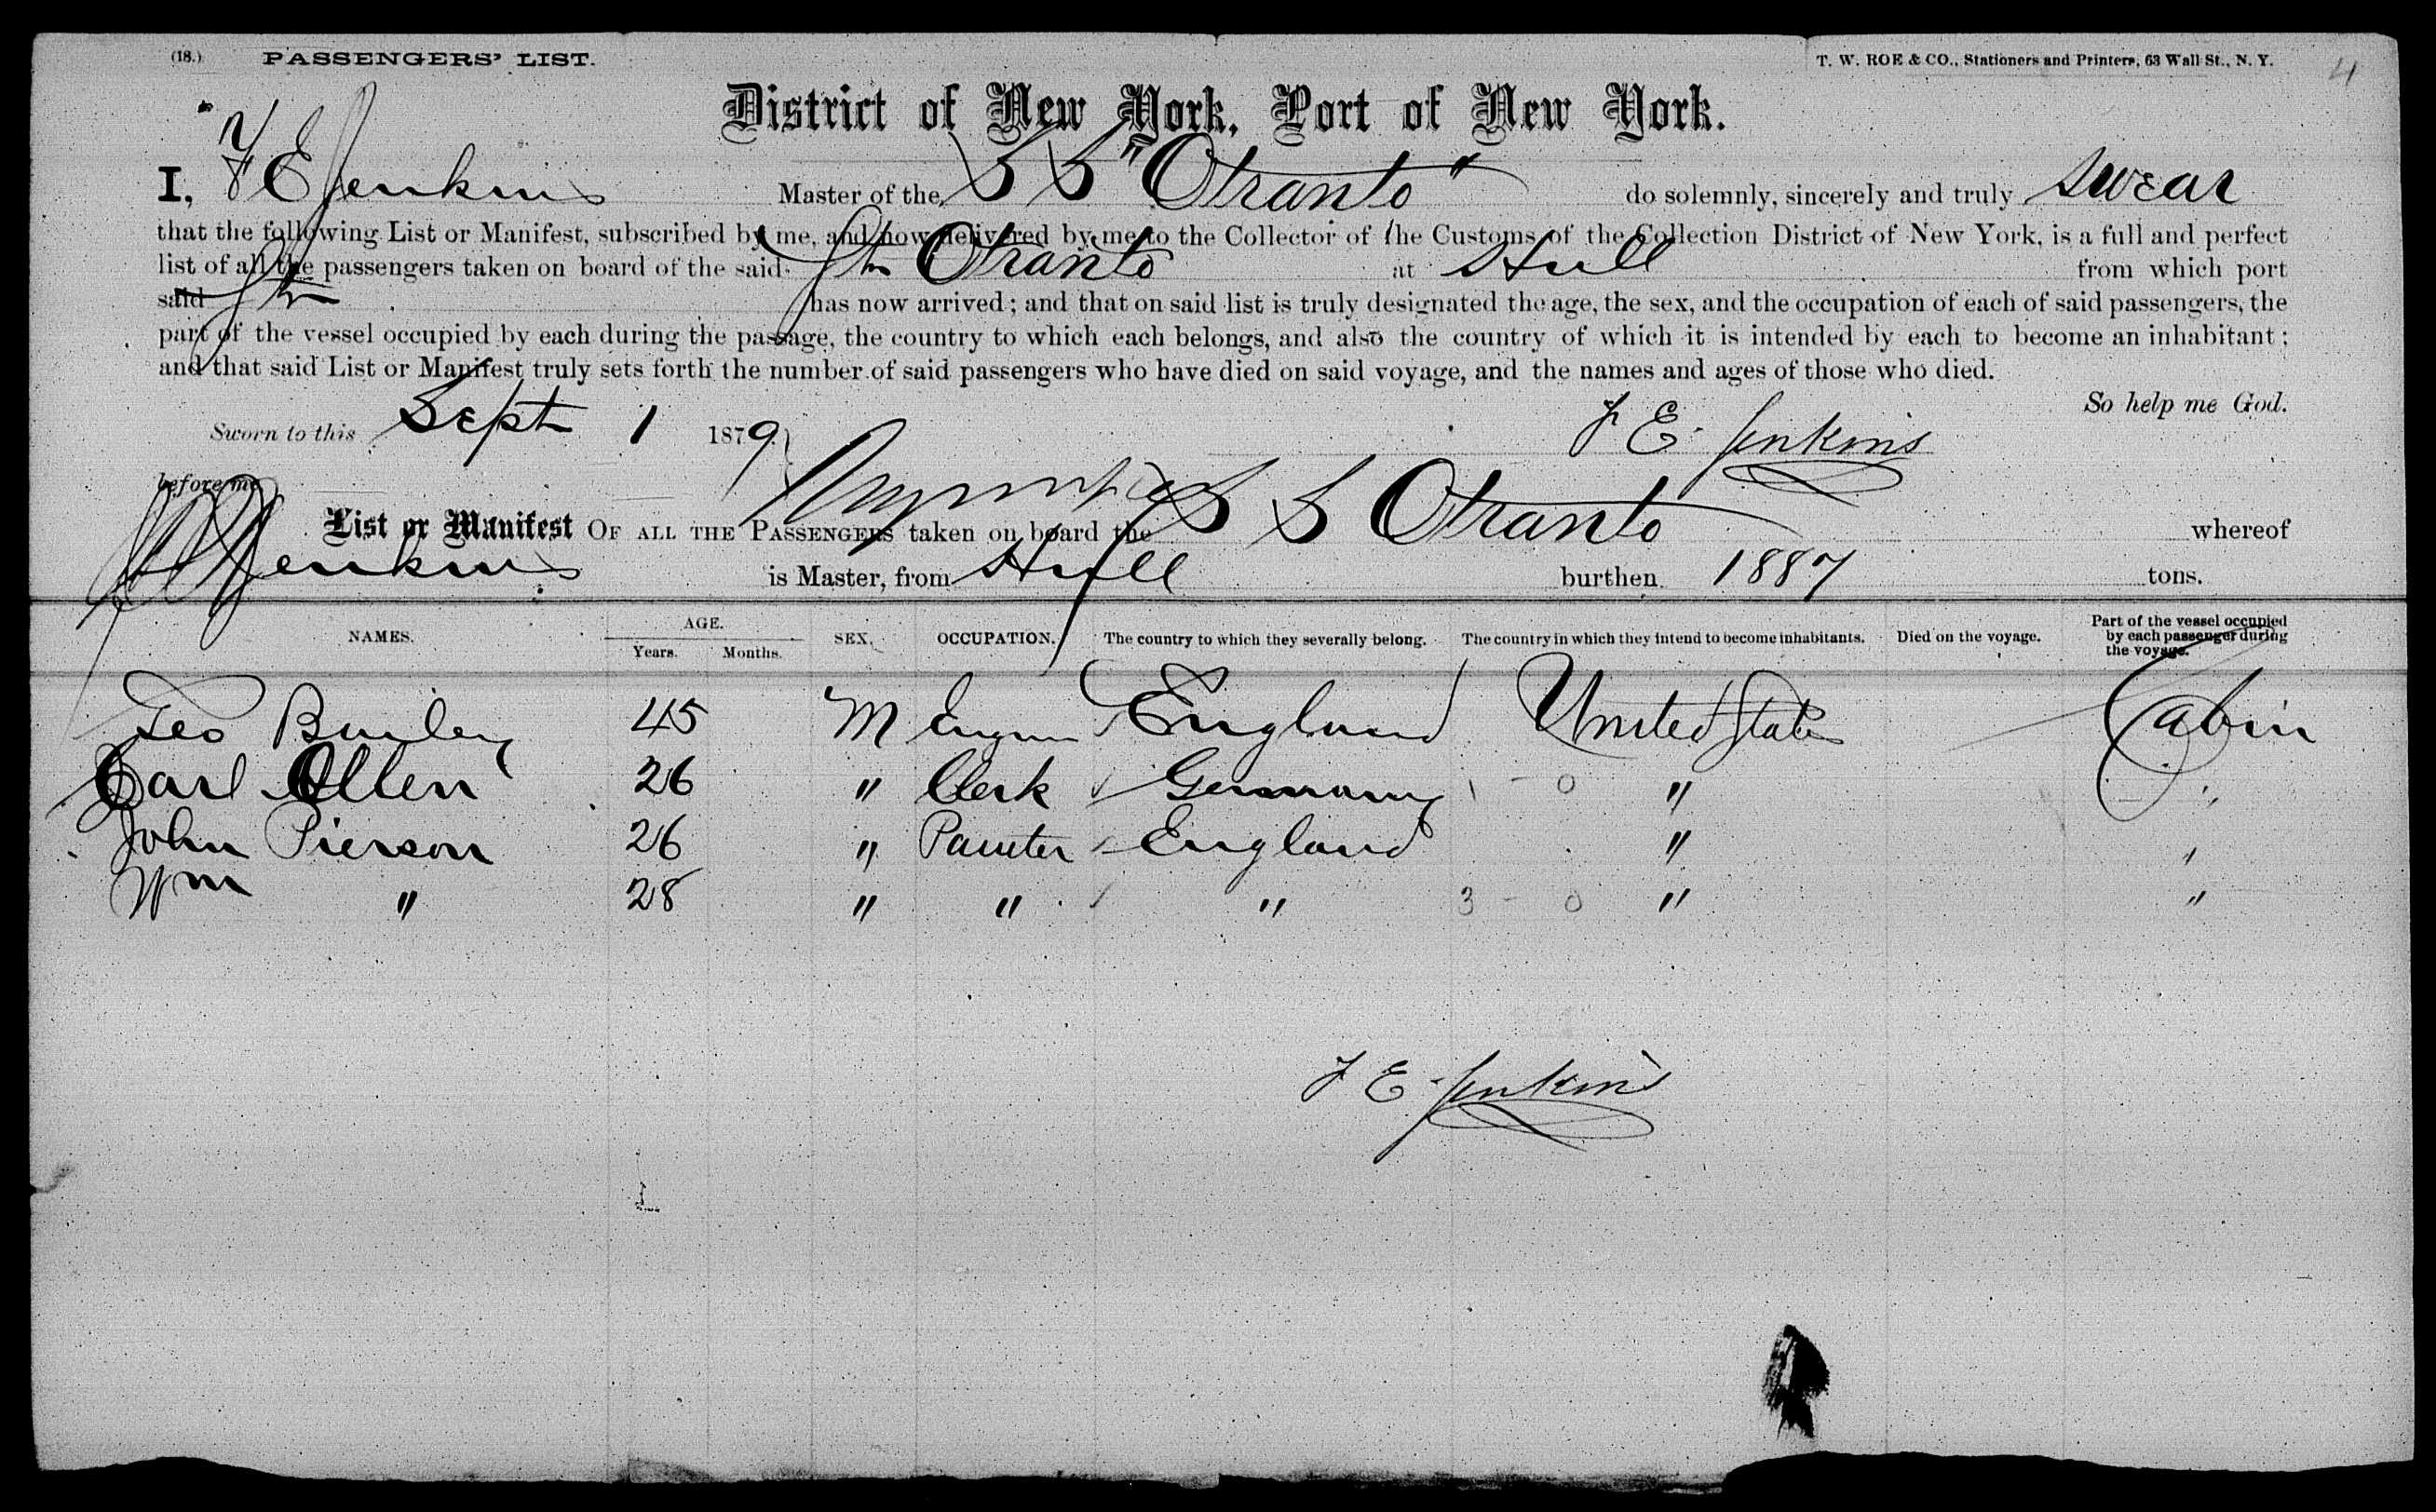 (18.) PASSENGERS' LIST. T. W. ROE & CO., Stationers and Printers, 63 Wall St., N. Y. 4
District of New York, Port of New York.
I, F E Jenkins Master of the S S "Otranto" do solemnly, sincerely and truly swear
that the following List or Manifest, subscribed by me, and now delivered by me to the Collector of the Customs of the Collection District of New York, is a full and perfect
list of all the passengers taken on board of the said Otranto at Hull from which port
said has now arrived; and that on said list is truly designated the age, the sex, and the occupation of each of said passengers, the
part of the vessel occupied by each during the passage, the country to which each belongs, and also the country of which it is intended by each to become an inhabitant;
and that said List or Manifest truly sets forth the number of said passengers who have died on said voyage, and the names and ages of those who died.
So help me God.
Sworn to this Sept 1 1879. F E Jenkins
before me
List or Manifest OF ALL THE PASSENGERS taken on board the S S Otranto whereof
Jenkins is Master, from Hull burthen 1887 tons.
NAMES. AGE. Years. Months. SEX. OCCUPATION. The country to which they severally belong. The country in which they intend to become inhabitants. Died on the voyage. Part of the vessel occupied by each passenger during the voyage.
Geo 45 M England United States Cabin
Carl Ollen 26 " Clerk Germany 1 - 0 " "
John Pierson 26 " Painter England " "
Wm " 28 " " " 3 - 0 " "
F E Jenkins